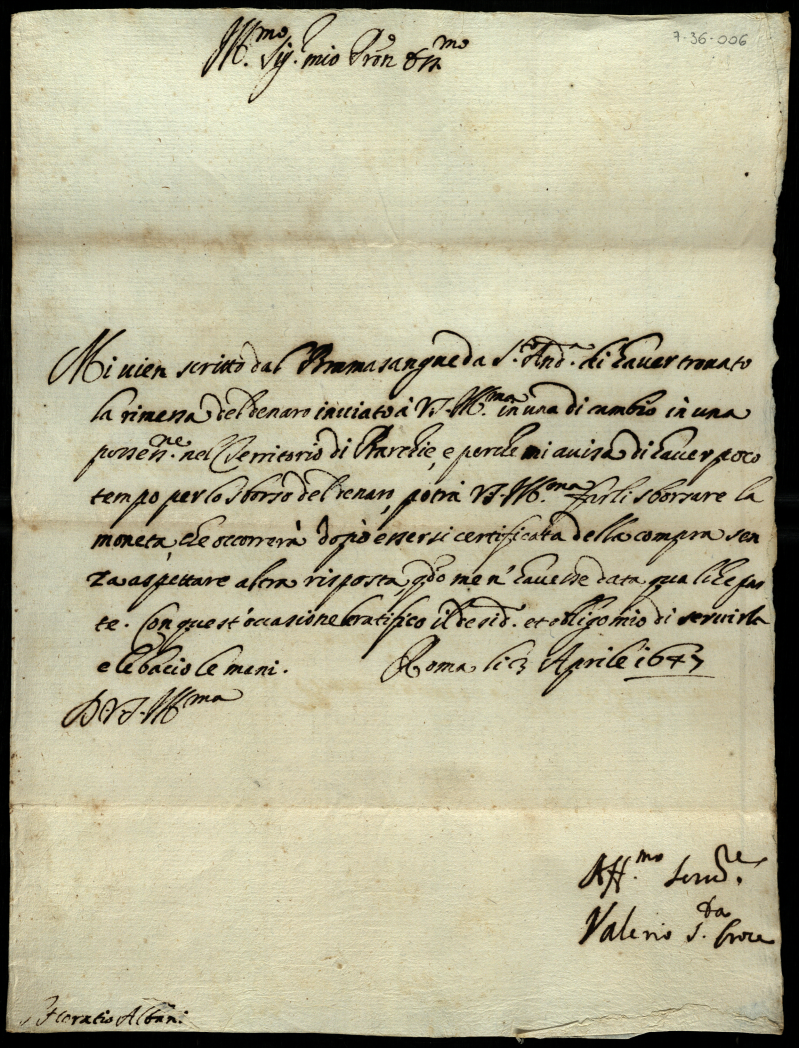 7-36-006
Ill.mo Sig. mio Pron Oss.mo
Mi vien scritto dal Brumasangue da S.to And.a di haver trovato
la rimessa del denaro inviato à V.S. Ill.ma in una di cambio in una
possess.ne nel Territorio di e perche mi avisa di haver poco
tempo per lo sborso del denaro, potrà V.S. Ill.ma farli sborsare la
moneta, che occorrerà dopò essersi certificata della compra sen
za aspettare altra risposta, qdo me n' havesse data qualche par
te. Con quest' occasione ratifico il desid. et obligo mio di servirla
e le bacio le mani. Roma li 3 Aprile 1647
D. V. S. Ill.ma
Aff.mo Serv.re
Valerio S.ta Croce
S. Horatio Albani